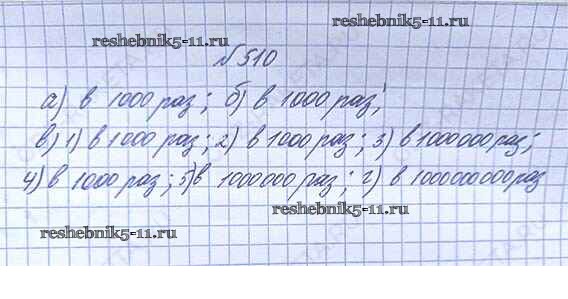 reshebnik5-11.ru
reshebnik5-11.ru
№510
а) в 1000 раз; б) в 1000 раз;
в) 1) в 1000 раз; 2) в 1000 раз; 3) в 1000000 раз;
4) в 1000 раз; 5) в 1000000 раз; г) в 1000000000 раз
reshebnik5-11.ru
reshebnik5-11.ru